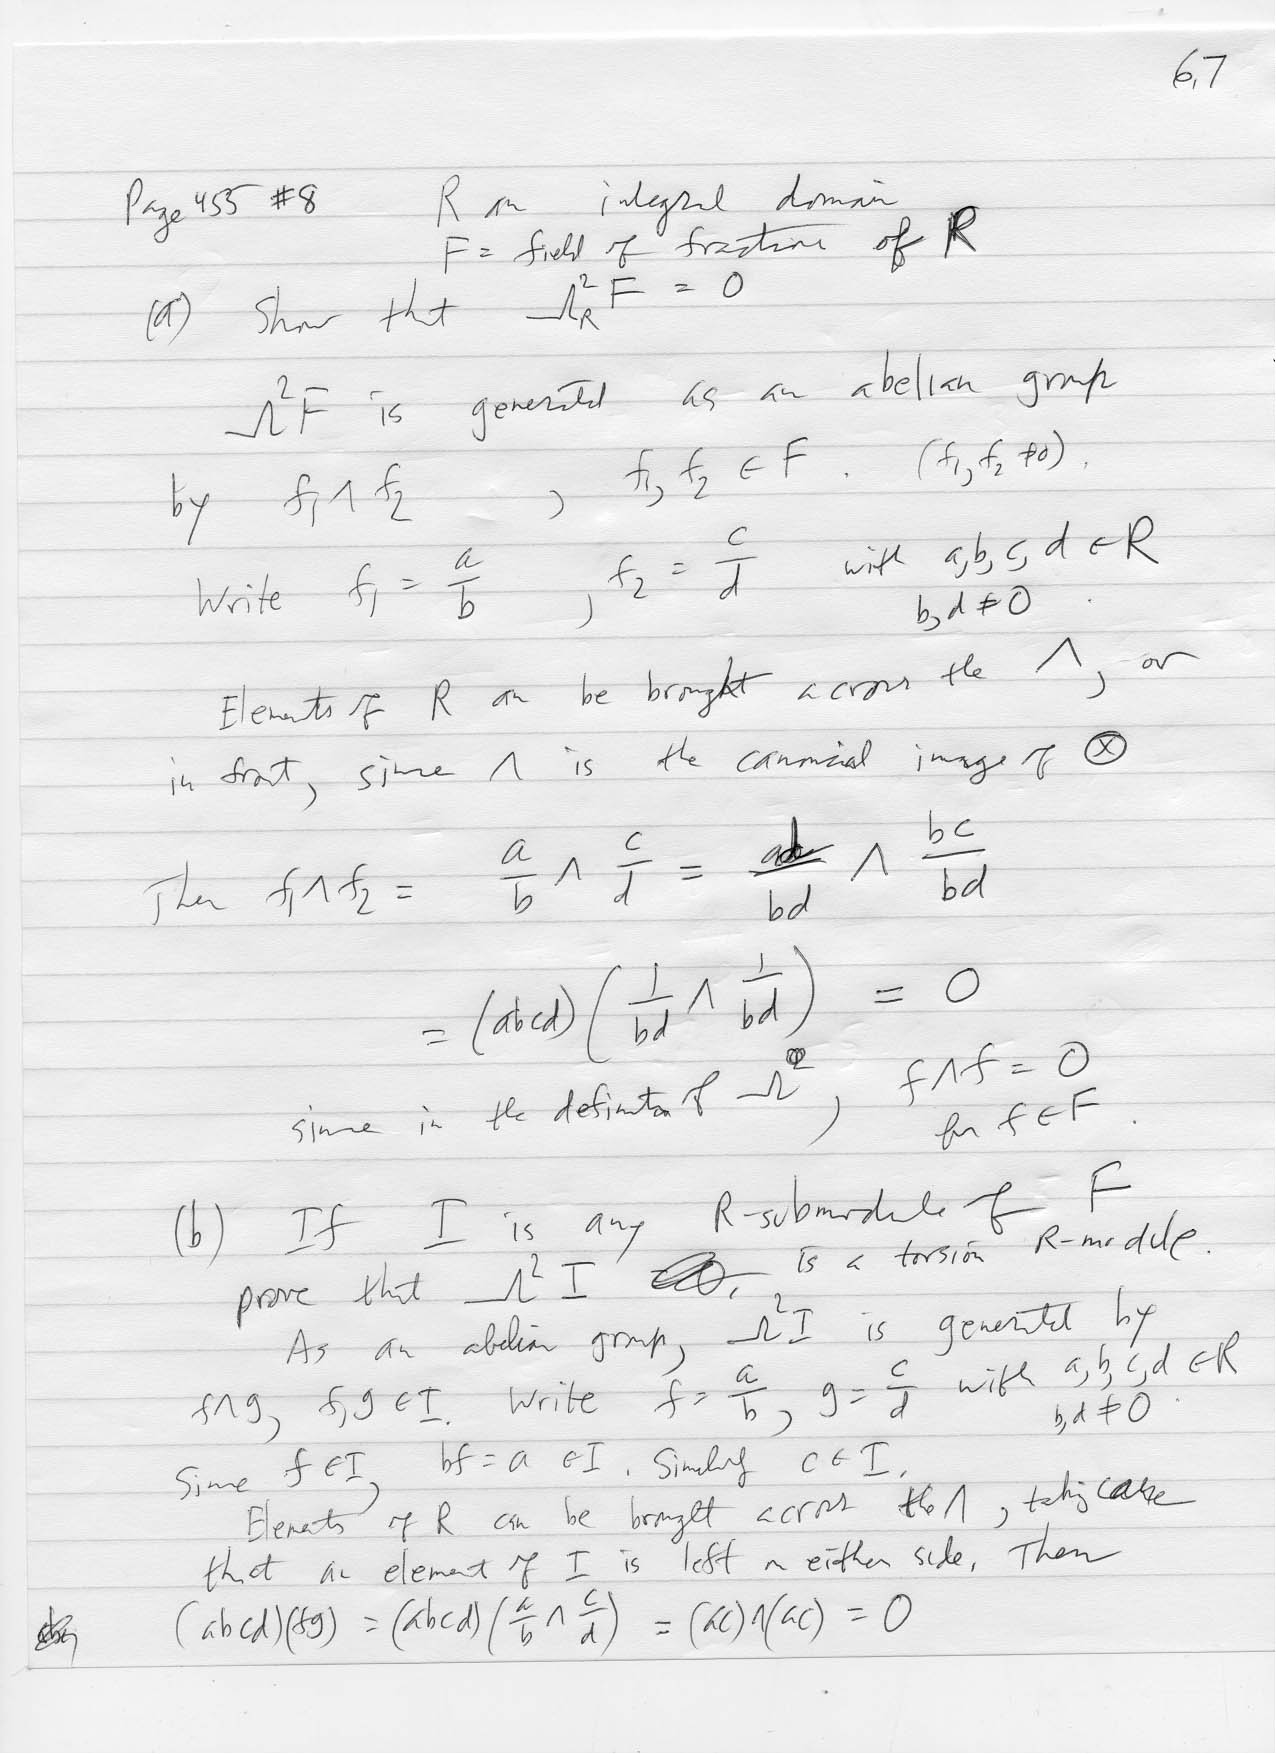 6.7
Page 455 #8 R an integral domain
F = field of fractions of R
(a) Show that Λ²_R F = 0
Λ²F is generated as an abelian group
by f₁ ∧ f₂ , f₁, f₂ ∈ F. (f₁, f₂ ≠ 0).
Write f₁ = a/b , f₂ = c/d with a, b, c, d ∈ R
b, d ≠ 0.
Elements of R can be brought across the ∧, or
in front, since ∧ is the canonical image of ⊗
Then f₁ ∧ f₂ = a/b ∧ c/d = ad/bd ∧ bc/bd
= (abcd) (1/bd ∧ 1/bd) = 0
since in the definition of Λ², f ∧ f = 0
for f ∈ F.
(b) If I is any R-submodule of F
prove that Λ² I is a torsion R-module.
As an abelian group, Λ²I is generated by
f∧g, f, g ∈ I. Write f = a/b, g = c/d with a, b, c, d ∈ R
b, d ≠ 0.
Since f ∈ I, bf = a ∈ I. Similarly c ∈ I.
Elements of R can be brought across the ∧, taking care
that an element of I is left on either side. Then
(abcd)(fg) = (abcd) (a/b ∧ c/d) = (ac)∧(ac) = 0